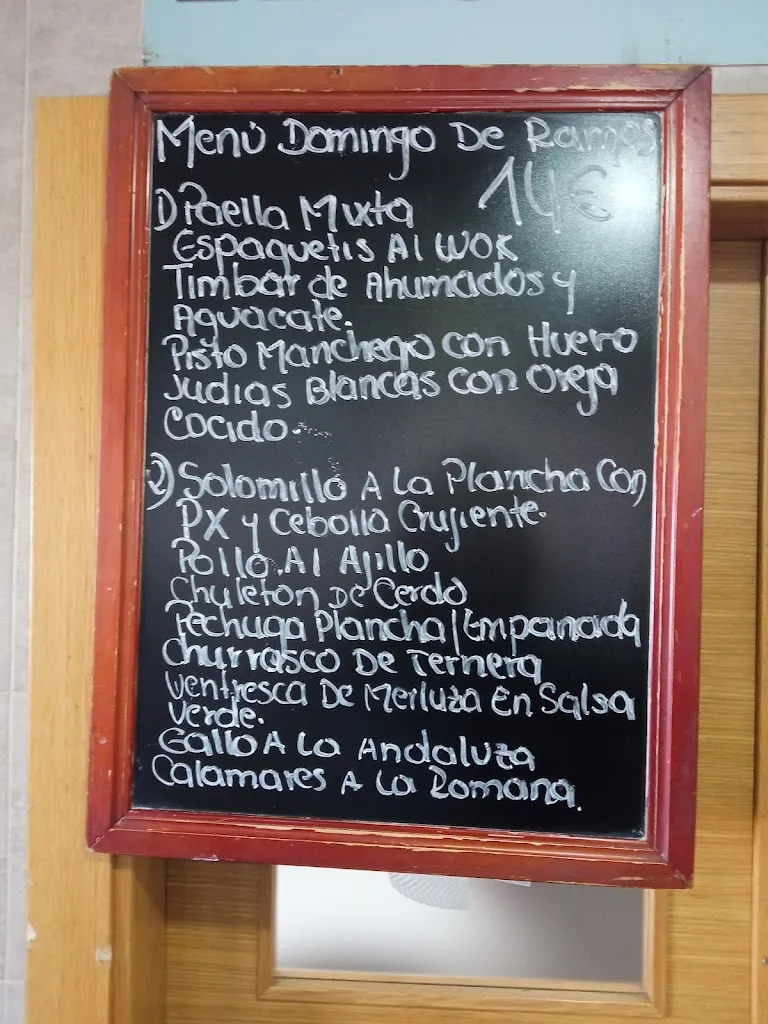 Menú Domingo De Ramos
14€
1) Paella Mixta
Espaguetis Al Wok
Timbar de Ahumados y
Aguacate.
Pisto Manchego con Huevo
Judias Blancas con Oreja
Cocido.
2) Solomillo A La Plancha Con
PX y Cebolla Crujiente.
Pollo Al Ajillo
Chuleton De Cerdo
Pechuga Plancha/Empanada
Churrasco De Ternera
Ventresca De Merluza En Salsa
Verde.
Gallo A La Andaluza
Calamares A La Romana.